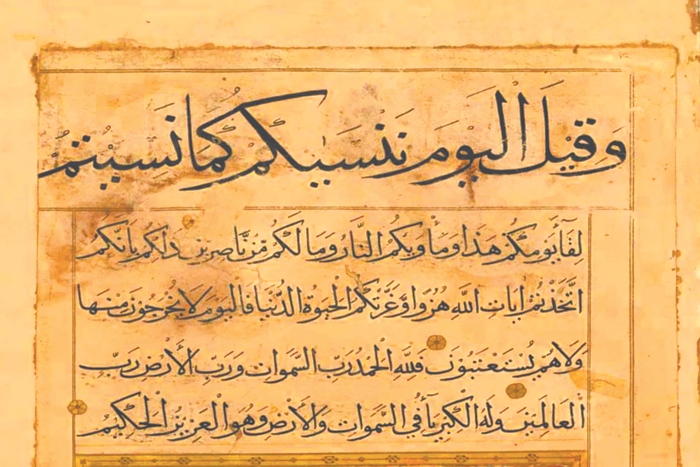 وَقِيلَ الْيَوْمَ نَنْسٰيكُمْ كَمَا نَسِيتُمْ
لِقَآءَ يَوْمِكُمْ هٰذَا وَمَأْوٰيكُمُ النَّارُ وَمَا لَكُمْ مِنْ نَاصِرِينَ ذٰلِكُمْ بِاَنَّكُمُ
اتَّخَذْتُمْ اٰيَاتِ اللّٰهِ هُزُوًا وَغَرَّتْكُمُ الْحَيٰوةُ الدُّنْيَا فَالْيَوْمَ لَا يُخْرَجُونَ مِنْهَا
وَلَا هُمْ يُسْتَعْتَبُونَ فَلِلّٰهِ الْحَمْدُ رَبِّ السَّمٰوَاتِ وَرَبِّ الْاَرْضِ رَبِّ
الْعَالَمِينَ وَلَهُ الْكِبْرِيَآءُ فِي السَّمٰوَاتِ وَالْاَرْضِ وَهُوَ الْعَزِيزُ الْحَكِيمُ